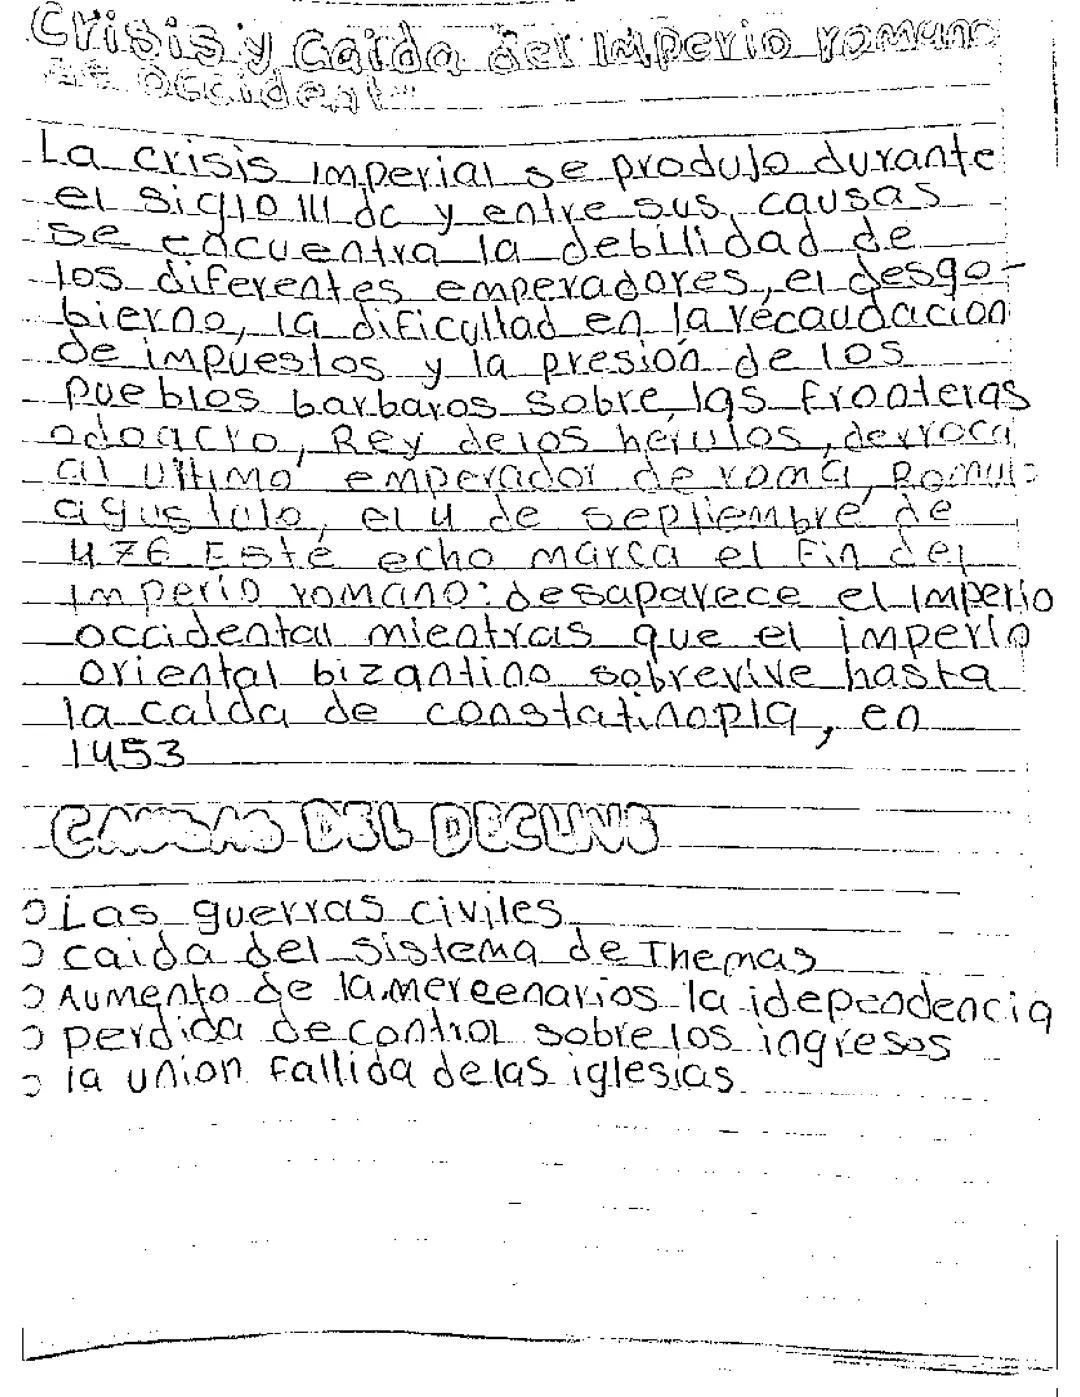 Crisis y Caida del Imperio romano
de occidente
La crisis imperial se produjo durante
el siglo III dc y entre sus causas
se encuentra la debilidad de
los diferentes emperadores, el desgo-
bierno, la dificultad en la recaudación
de impuestos y la presión de los
pueblos barbaros sobre las fronteras
odoacro, Rey de los hérulos, derroca
al ultimo emperador de roma, Romulo
agustulo, el 4 de septiembre de
476 Esté echo marca el Fin del
imperio romano: desaparece el imperio
occidental mientras que el imperio
oriental bizantino sobrevive hasta
la caida de constatinopla, en
1453
CAUSAS DEL DECLIVE
Las guerras civiles
caida del sistema de Themas
Aumento de la mercenarios la idependencia
perdida de control sobre los ingresos
la union fallida de las iglesias